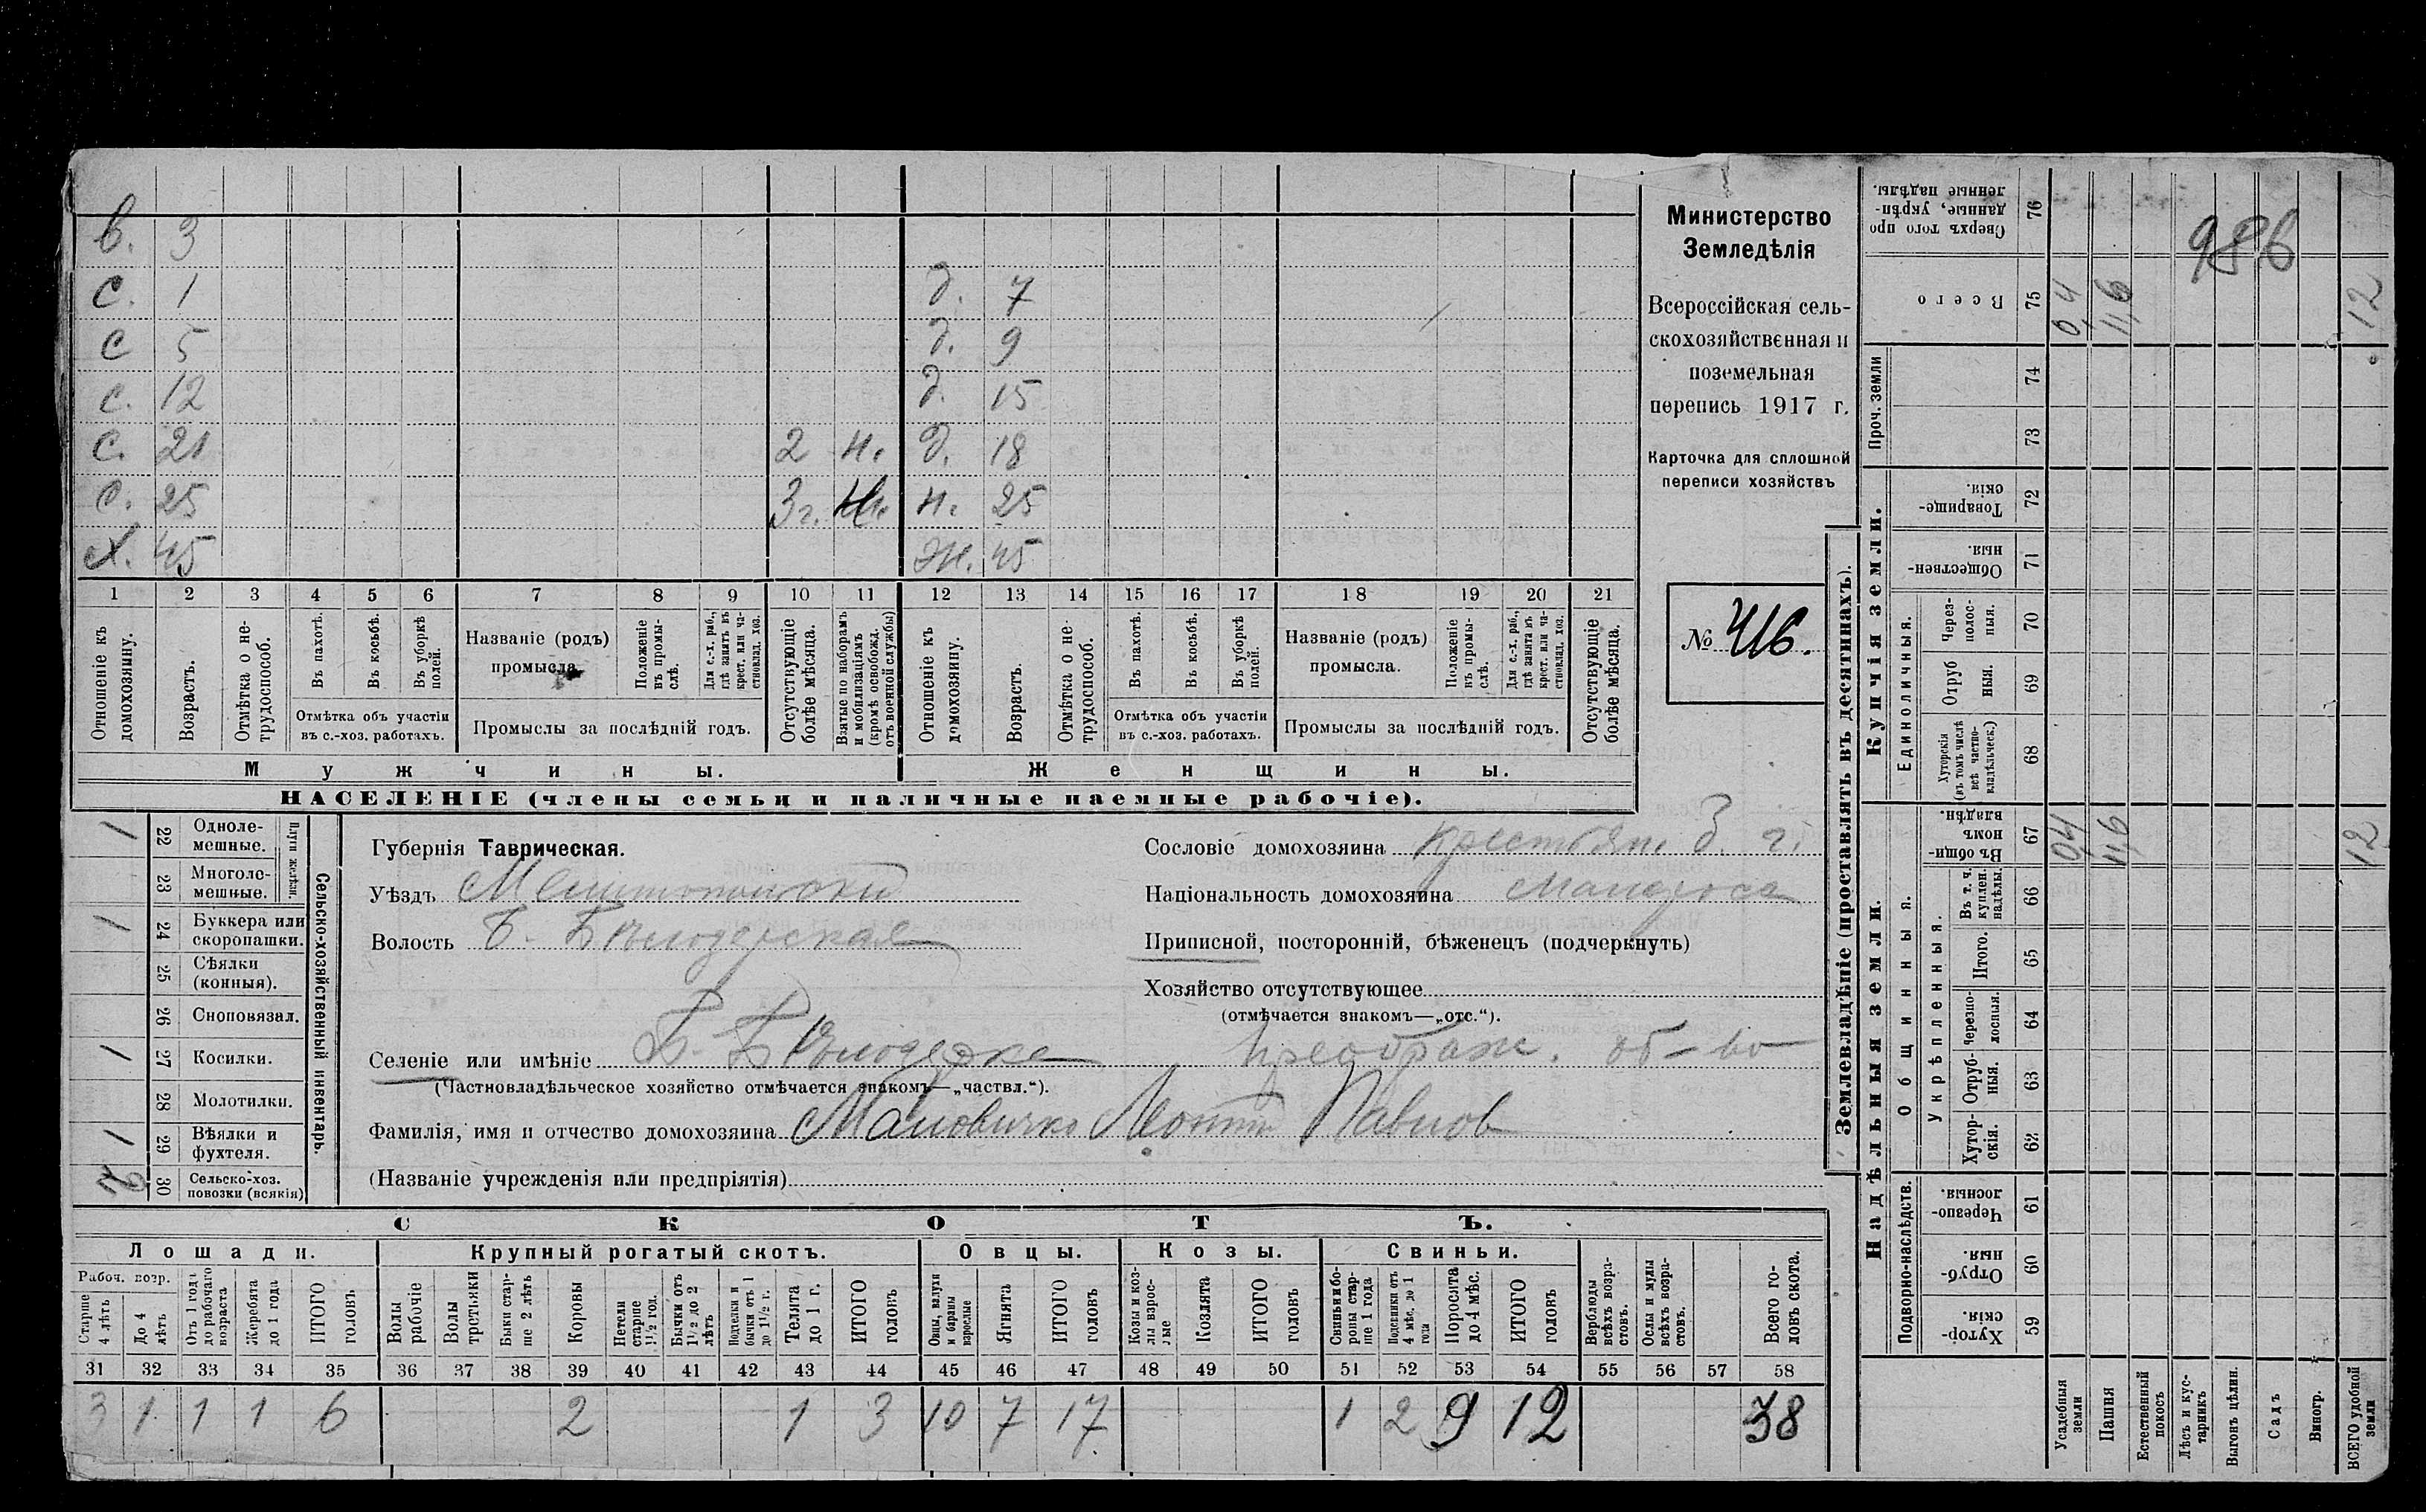 в. 3
с. 1 д. 7
с 5 д. 9
с. 12 д. 15
с. 21 2 н. д. 18
с. 25 3 г. н. н. 25
х. 45 ж. 45
1 2 3 4 5 6 7 8 9 10 11 12 13 14 15 16 17 18 19 20 21
Отношеніе къ домохозяину.
Возрастъ.
Отмѣтка о не-трудоспособ.
Въ пахотѣ.
Въ косьбѣ.
Въ уборкѣ полей.
Отмѣтка объ участіи
въ с.-хоз. работахъ.
Названіе (родъ)
промысла.
Положеніе въ промы-слѣ.
Для с.-х. раб., гдѣ занятъ въ крест. или ча-стновлад. хоз.
Промыслы за послѣдній годъ.
Отсутствующіе болѣе мѣсяца.
Взятые по наборамъ и мобилизаціямъ (кромѣ освобожд. отъ военной службы)
Отношеніе къ домохозяину.
Возрастъ.
Отмѣтка о не-трудоспособ.
Въ пахотѣ.
Въ косьбѣ.
Въ уборкѣ полей.
Отмѣтка объ участіи
въ с.-хоз. работахъ.
Названіе (родъ)
промысла.
Положеніе въ промы-слѣ.
Для с.-х. раб., гдѣ занятъ въ крест. или ча-стновлад. хоз.
Промыслы за послѣдній годъ.
Отсутствующіе болѣе мѣсяца.
Мужчины. Женщины.
НАСЕЛЕНІЕ (члены семьи и наличные наемные рабочіе).
Министерство
Земледѣлія
Всероссійская сель-
скохозяйственная и
поземельная
перепись 1917 г.
Карточка для сплошной
переписи хозяйствъ
№ 416.
22 Одноле-мешные. 1
23 Многоле-мешные.
Плуги желѣзн.
24 Буккера или скоропашки. 1
25 Сѣялки (конныя).
26 Сноповязал.
27 Косилки. 1
28 Молотилки.
29 Вѣялки и фухтеля. 1
30 Сельско-хоз. повозки (всякія)
Сельско-хозяйственный инвентарь.
Губернія Таврическая.
Уѣздъ Мелитопольскій
Волость Б. Бѣлозерская
Селеніе или имѣніе Б.-Бѣлозерка Преображ. об-во
(Частновладѣльческое хозяйство отмѣчается знакомъ—„частвл.“).
Фамилія, имя и отчество домохозяина Маловичко Леонтій Павлов
(Названіе учрежденія или предпріятія)
Сословіе домохозяина крестьян.
Національность домохозяина малоросс
Приписной, посторонній, бѣженецъ (подчеркнуть)
Хозяйство отсутствующее
(отмѣчается знакомъ—„отс.“).
СКОТЪ.
Лошади. Крупный рогатый скотъ. Овцы. Козы. Свиньи.
Рабоч. возр.
Старше 4 лѣтъ
До 4 лѣтъ
Отъ 1 года до рабочаго возраста
Жеребята до 1 года
ИТОГО головъ
Волы рабочіе
Волы третьяки
Быки стар-ше 2 лѣтъ
Коровы
Нетели старше 1½ год.
Бычки отъ 1½ до 2 лѣтъ
Подтелки и бычки отъ 1 до 1½ г.
Телята до 1 г.
ИТОГО головъ
Овцы, валухи и бараны взрослые
Ягнята
ИТОГО головъ
Козы и коз-лы взрос-лые
Козлята
ИТОГО головъ
Свиньи и бо-ровы стар-ше 1 года
Подсвинки отъ 4 мѣс. до 1 года
Поросята до 4 мѣс.
ИТОГО головъ
Верблюды всѣхъ возра-стовъ.
Ослы и мулы всѣхъ возра-стовъ.
Всего го-ловъ скота.
31 32 33 34 35 36 37 38 39 40 41 42 43 44 45 46 47 48 49 50 51 52 53 54 55 56 57 58
3 1 1 1 6 2 1 3 10 7 17 1 2 9 12 38
Землевладѣніе (проставлять въ десятинахъ).
Сверхъ того про-данные, укрѣп-ленные надѣлы. 76
986
Всего 75 0,4 11,6 12
Проч. земли 74 73
Купчія земли.
Товарище-скія. 72
Обществен-ныя. 71
Единоличныя.
Через-полос-ныя. 70
Отруб ныя. 69
Хуторскія (въ томъ числѣ всѣ частно-владѣльческ.) 68
Надѣльныя земли.
Общинныя.
Въ общи-номъ владѣн. 67 0,4 11,6 12
Укрѣпленныя.
Въ т. ч. куплен. надѣлы. 66
Итого. 65
Черезпо-лосныя. 64
Отруб-ныя. 63
Хутор-скія. 62
Подворно-наслѣдств.
Черезпо-лосныя. 61
Отруб-ныя. 60
Хутор-скія. 59
Усадебныя земли
Пашня
Естественный покосъ
Лѣсъ и кус-тарникъ
Выгонъ цѣлин.
Садъ
Виногр.
ВСЕГО удобной земли